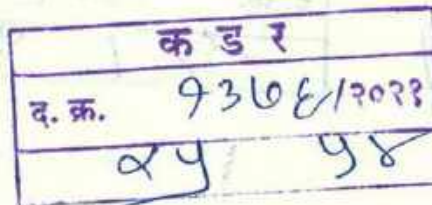 क ड र
द. क्र. १३७६/२०२१
५४